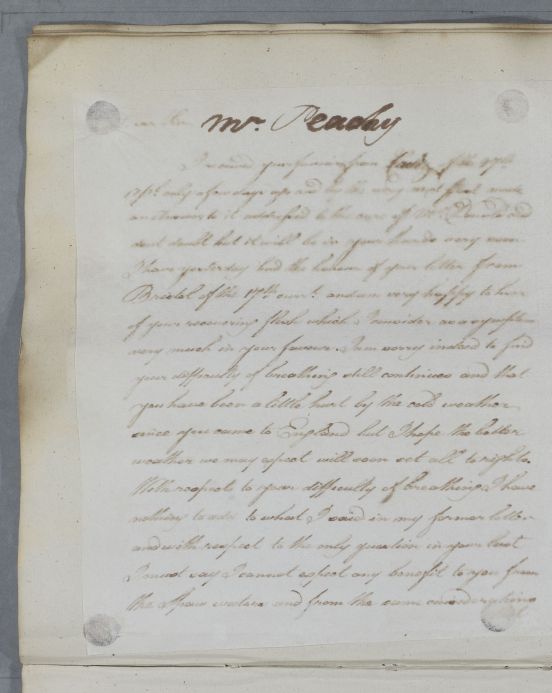 Mr. Peachy
I received your favour from of the 17th
only a few days ago and by the very next post made
an answer to it addressed to the care of Mr. and
dont doubt but it will be in your hands very soon.
I have yesterday had the honour of your letter from
Bristol of the 17th curt. and am very happy to hear
of your recovering flesh which I consider as a symptom
very much in your favour. I am sorry indeed to find
your difficulty of breathing still continues and that
you have been a little hurt by the cold weather
since you came to England but I hope the better
weather we may expect will soon set all to rights.
With respect to your difficulty of breathing I have
nothing to add to what I said in my former letter
and with respect to the only question in your last
I must say I cannot expect any benefit to you from
the Spaw waters and from the same considerations